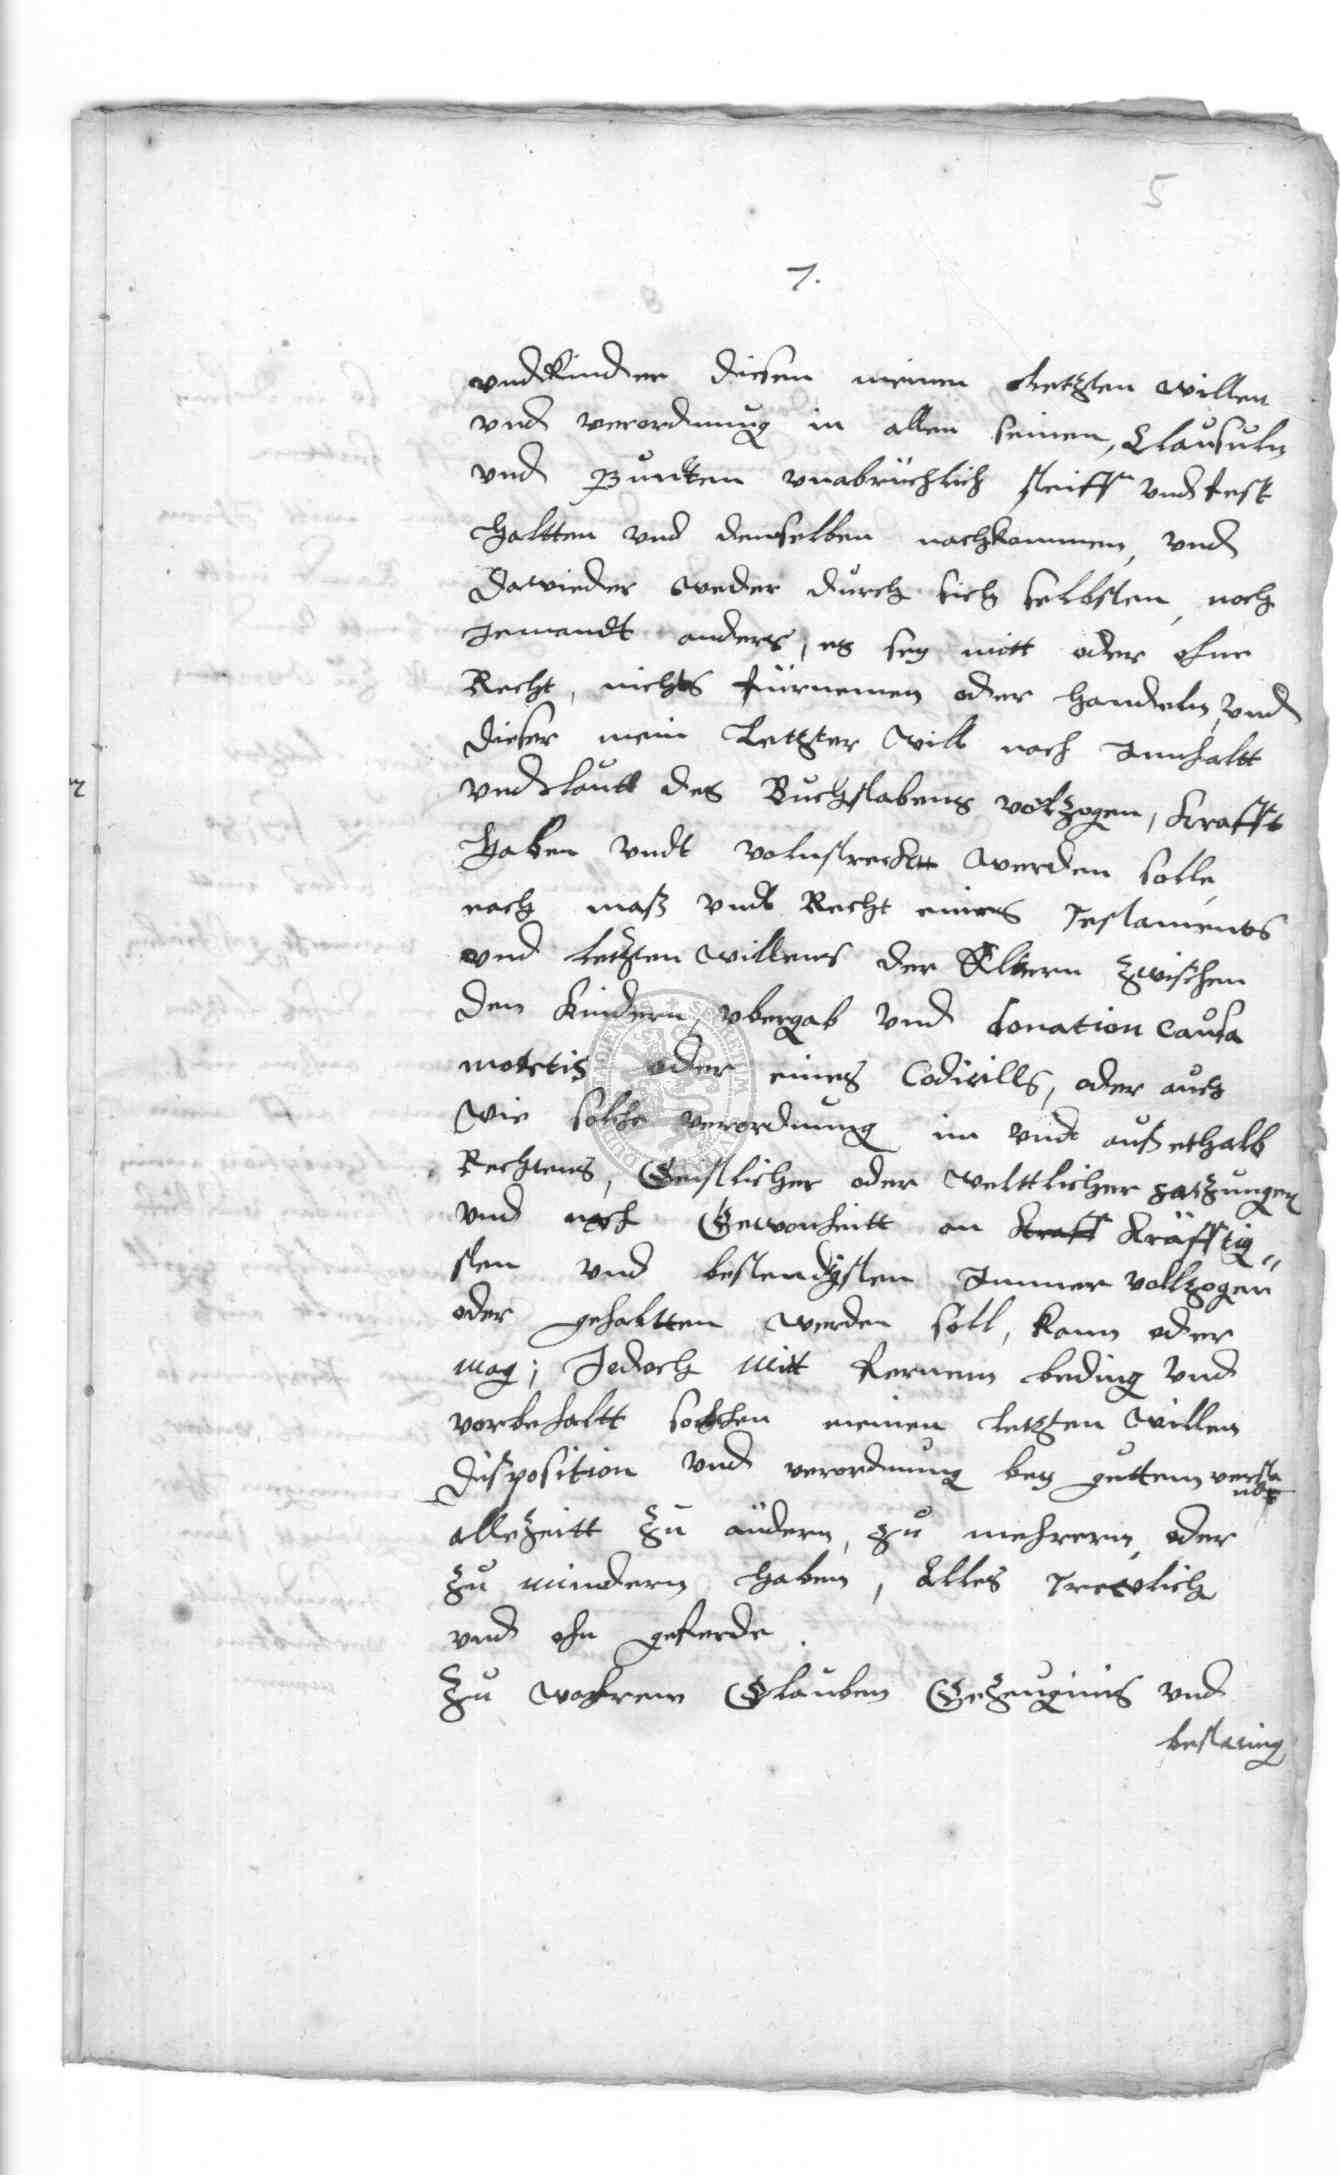 5
7.
vnd Kinder diesen meinen Letzten willen
vnd verordnung in allen seinen, Clausuln
vnd Puncten vnabrüchlich steiff vnd fest
haltten vnd demselben nachkommen, vnd
dawieder weder durch sich selbsten, noch
Jemandt anders, es sey mitt oder ohne
Recht, nichts fürnemen oder handeln, vnd
dieser mein Letzter Will nach Innhaltt
vnd lautt des Buchstabens volzogen, Krafft
haben vndt volnstrecktt werden solle,
nach maß vndt Recht eines Testaments
vnd letzten willens der Eltern zwischen
den Kindern, vbergab vnd donation causa
mortis oder eines Codicills, oder auch
wie solche verordnung im vndt ausserhalb
Rechtens, Geistlicher oder welttlicher satzungen
vnd nach Gewonheitt am Krafft Kräfftig„
sten vnd bestendigsten Immer vollzogen
oder gehaltten werden soll, kann oder
mag; Jedoch mitt fernem beding vnd
vorbehaltt solchen meinen letzten Willen
disposition vnd verordnung bey guttem versta
ndt
allezeitt zu ändern, zu mehrern, oder
zu mindern haben, Alles Trewlich
vnd ohn geferde.
Zu wahrem Glauben Gezeugnis vnd